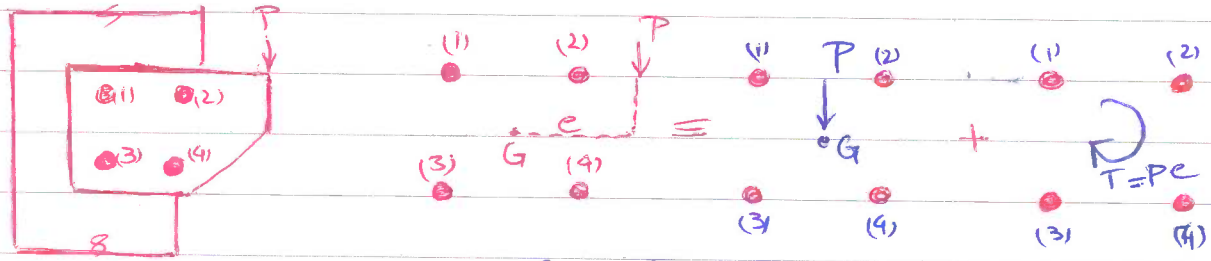 P
(1) (2)
(3) (4)
(1) (2) P
e
G
(3) (4)
=
(1) P (2)
G
(3) (4)
+
(1) (2)
T=Pe
(3) (4)